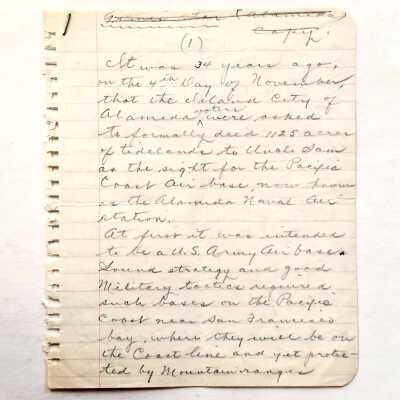 (Alameda)
Copy.
(1)
It was 34 years ago,
on the 4th Day of November,
that the Island City of
voters
Alameda were asked
to formally deed 1125 acres
of tidelands to Uncle Sam
as the sight for the Pacific
Coast Air base, now known
as the Alameda Naval Air
station.
At first it was intended
to be a U.S. Army Air base.
Sound strategy and good
Military tactics required
such bases on the Pacific
Coast near San Francisco
bay, where they will be on
the Coast line and yet protec-
ted by Mountain ranges